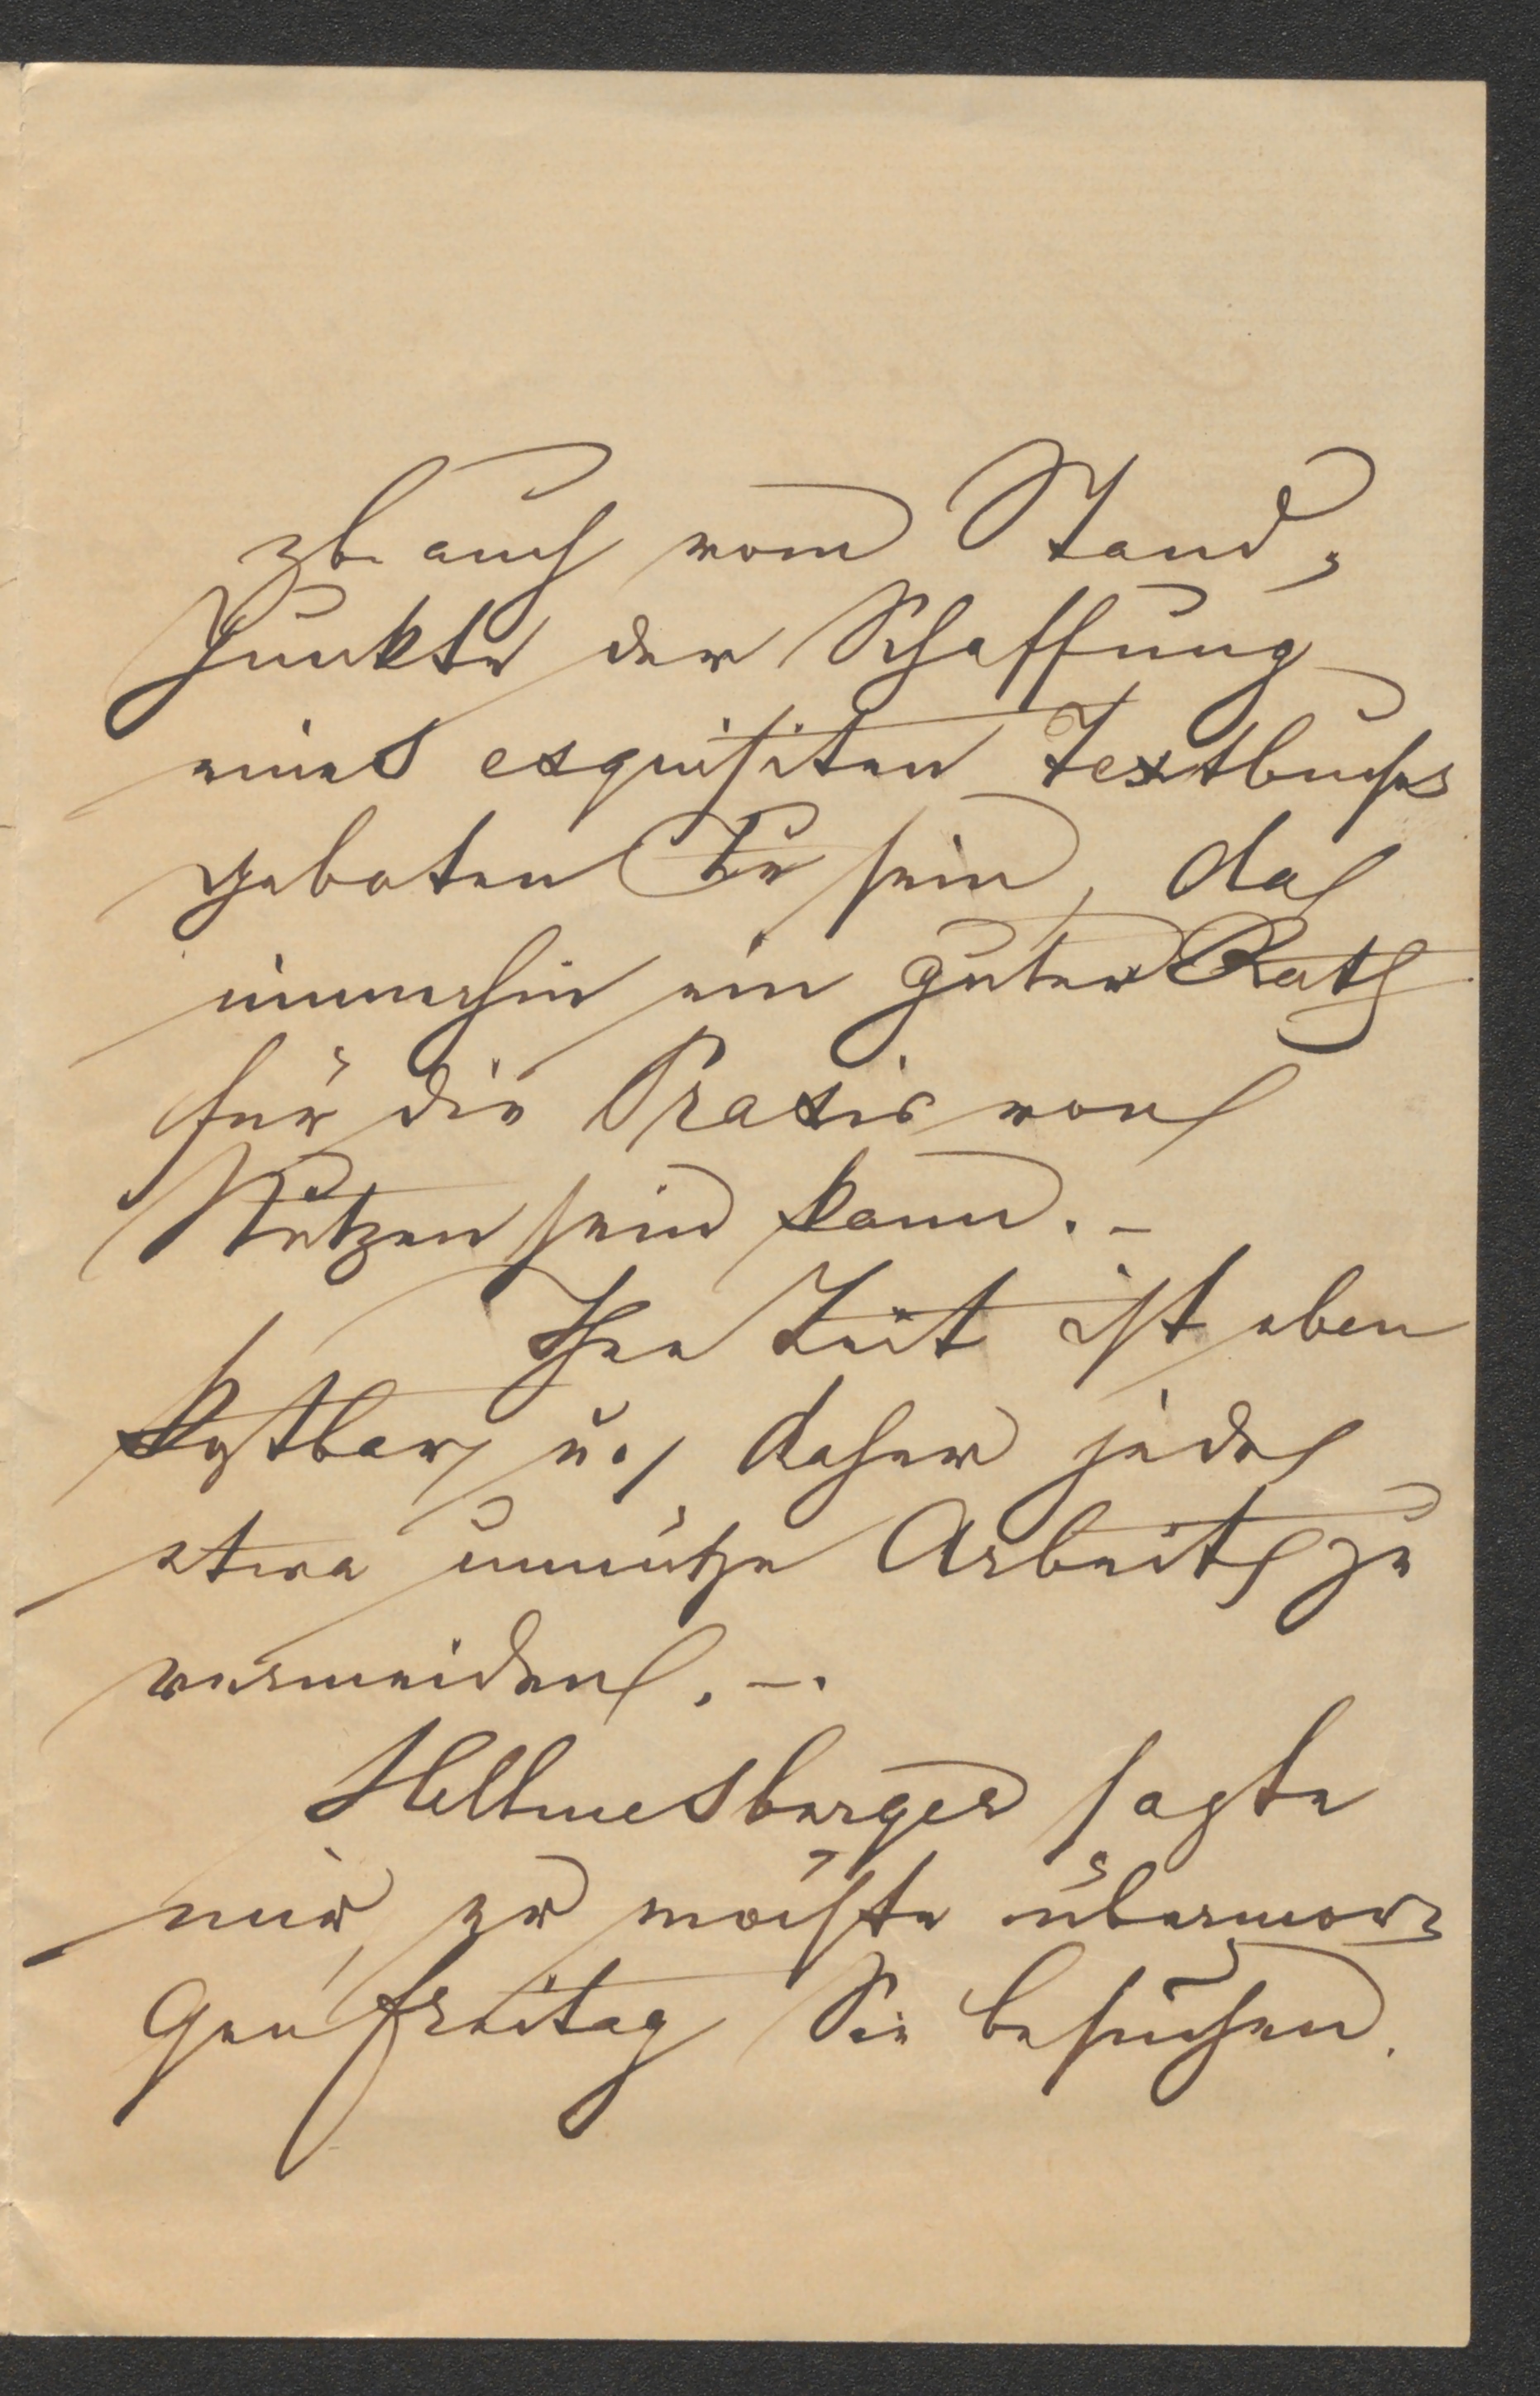 auch vom Stand-
punkte der Schaffung
eines exquisiten Textbuches
geboten zu sein, daß
immerhin ein guter Rath
für die Praxis von
Nutzen sein kann. –
Ihre Zeit ist eben
kostbar u. daher jede
etwa unnütze Arbeit zu
vermeiden. –.
Hellmesberger sagte
mir, er möchte übermor-
gen Freitag Sie besuchen.